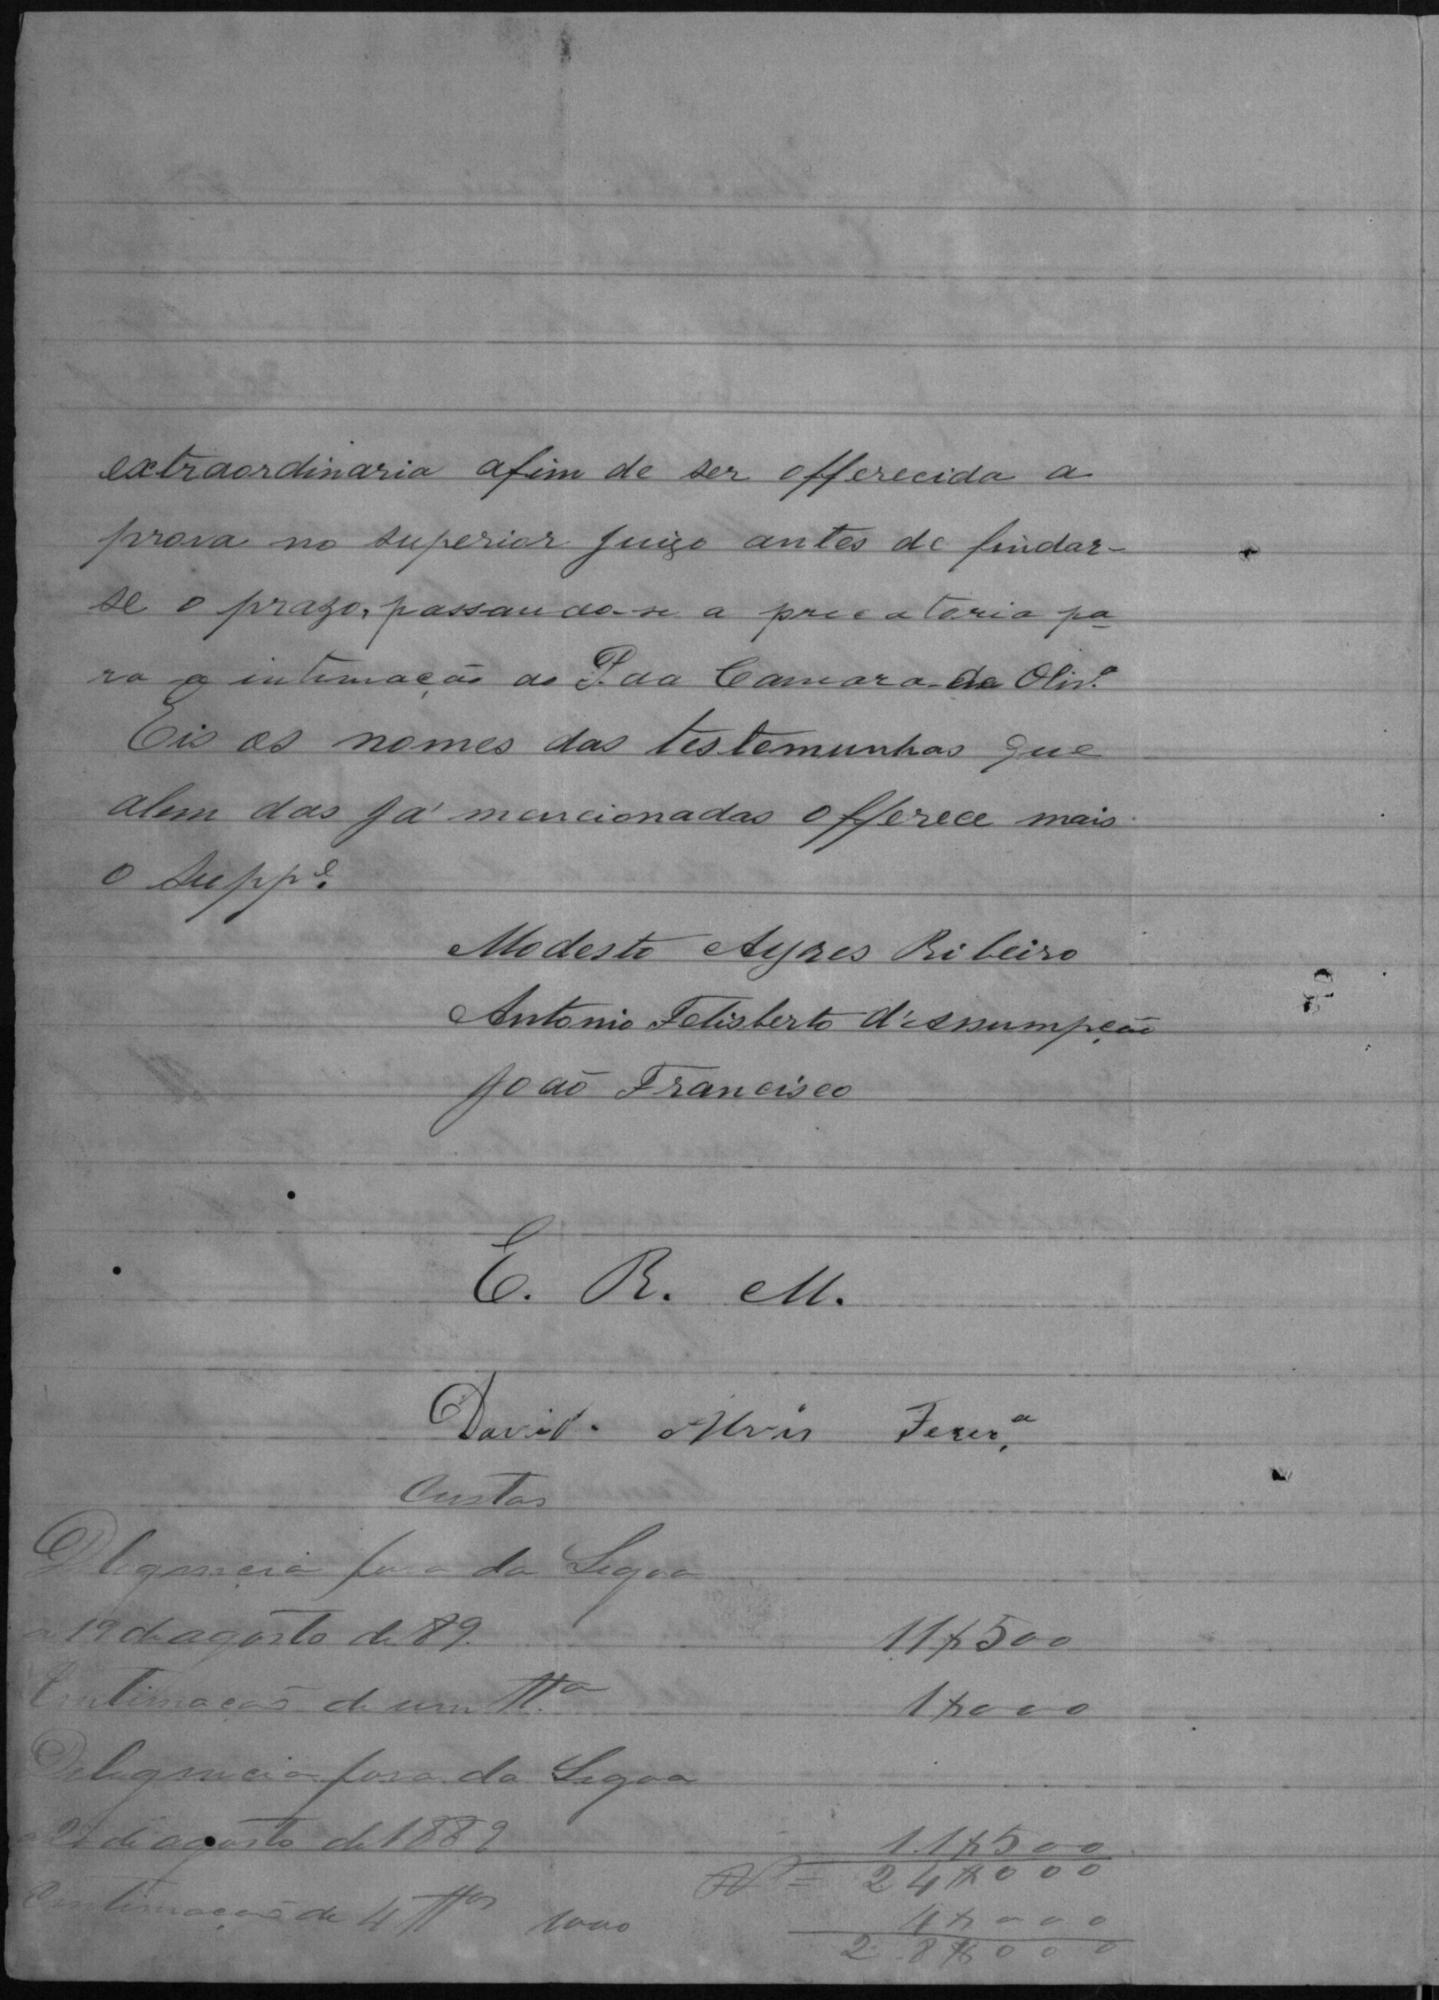 extraordinaria afim de ser offerecida a
prova no superior juizo antes de findar-
se o prazo, passando-se a precatoria pa
ra a intimação do P. da Camara da Olivª
Eis os nomes das testemunhas que
alem das já mencionadas offerece mais
o suppe.
Modesto Ayres Ribeiro
Antonio Felisberto d'Assumpção
João Francisco
E. R. M.
David Alves Ferrª
Custas
Deligencia fora da Legoa
a 19 de agosto de 89. 11$500
Entimação de um Ttª 1$000
Deligencia fora da Legoa
21 de agosto de 1889 11$500
24$000
Entimação de 4 Ttas 1000 4$000
28$000